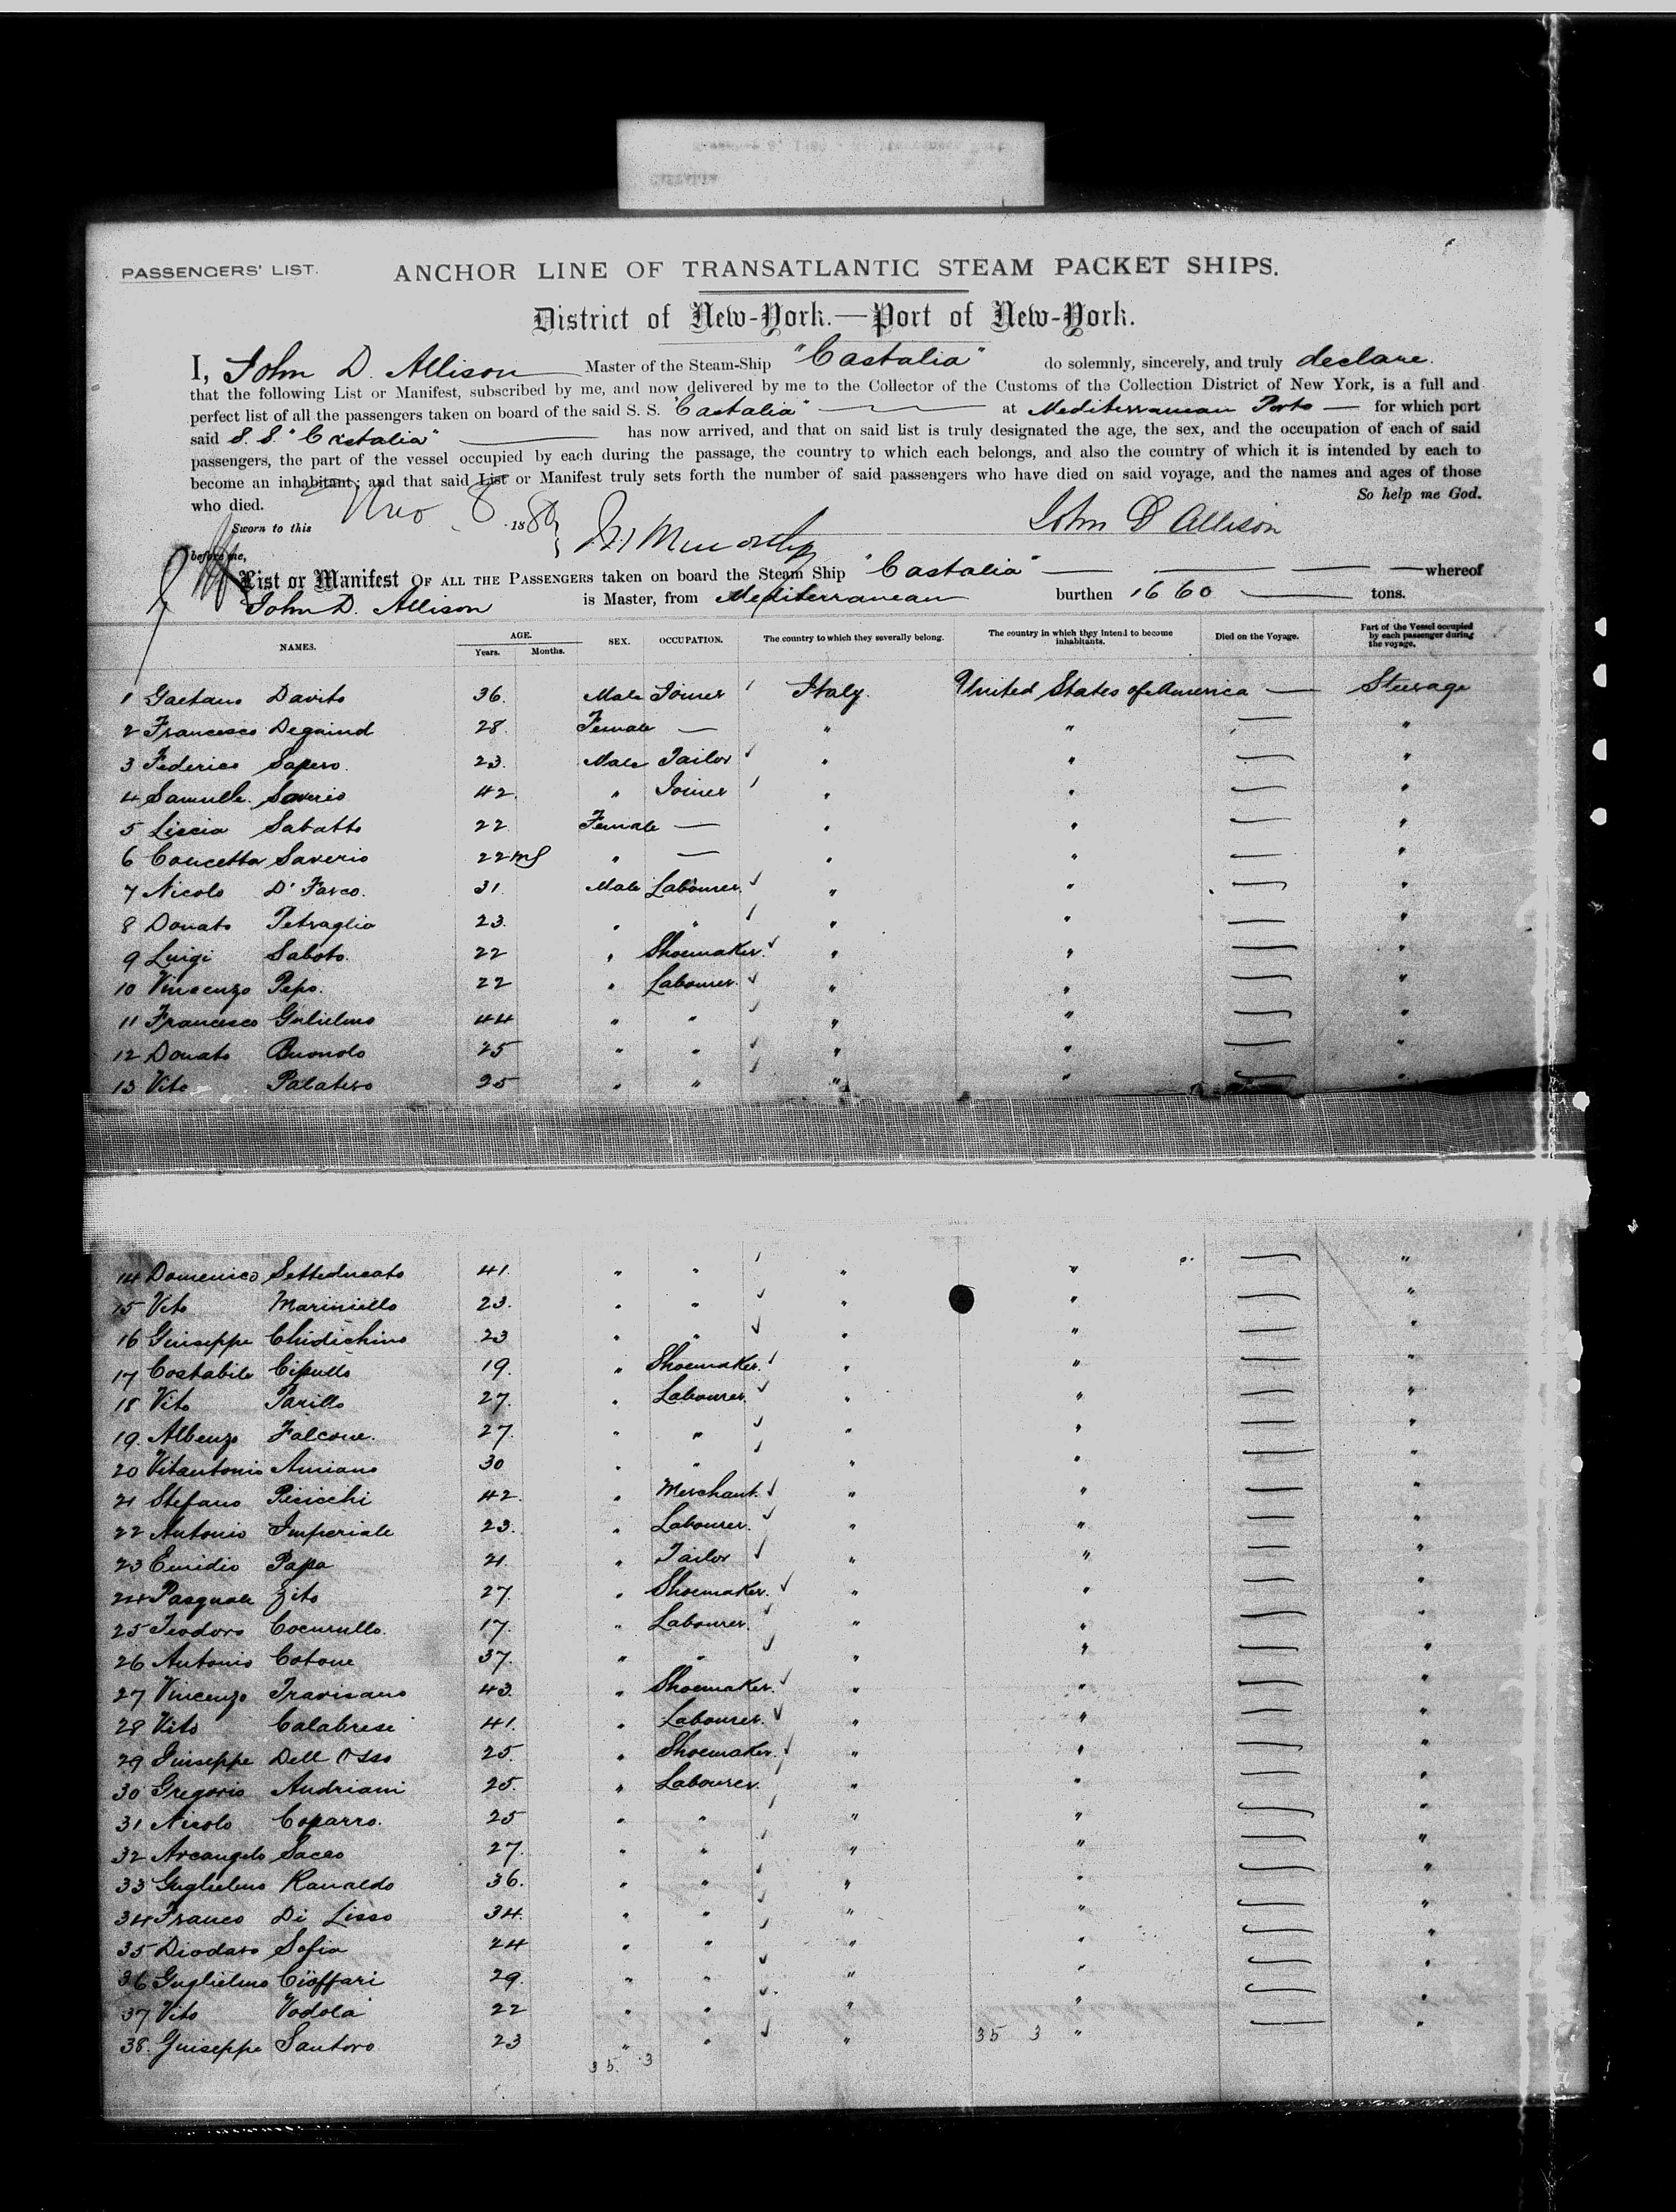 PASSENGERS' LIST.
ANCHOR LINE OF TRANSATLANTIC STEAM PACKET SHIPS.
District of New-York.—Port of New-York.
I, John D. Allison Master of the Steam-Ship "Castalia" do solemnly, sincerely, and truly declare.
that the following List or Manifest, subscribed by me, and now delivered by me to the Collector of the Customs of the Collection District of New York, is a full and
perfect list of all the passengers taken on board of the said S. S. "Castalia" — at Mediterranean Ports — for which port
said S. S. "Castalia" — has now arrived, and that on said list is truly designated the age, the sex, and the occupation of each of said
passengers, the part of the vessel occupied by each during the passage, the country to which each belongs, and also the country of which it is intended by each to
become an inhabitant; and that said List or Manifest truly sets forth the number of said passengers who have died on said voyage, and the names and ages of those
who died. So help me God.
Sworn to this Nov 8 188 John D Allison
before me,
List or Manifest OF ALL THE PASSENGERS taken on board the Steam Ship "Castalia" — — — — whereof
John D. Allison is Master, from Mediterranean burthen 1660 — tons.
NAMES. AGE. Years. Months. SEX. OCCUPATION. The country to which they severally belong. The country in which they intend to become inhabitants. Died on the Voyage. Part of the Vessel occupied by each passenger during the voyage.
1 Gaetano Davito 36. Male Joiner Italy. United States of America — Steerage
2 Francesco Degaind 28. Female — " " — "
3 Federico Sapero. 23. Male Tailor " " — "
4 Samuelle Saverio 42. " Joiner " " — "
5 Liccia Sabatto 22 Female — " " — "
6 Concetta Saverio 22 " — " " — "
7 Nicolo D'Farco. 31. Male Labourer. " " — "
8 Donato Petraglia 23. " " " " — "
9 Luigi Saboto. 22 " Shoemaker. " " — "
10 Vincenzo Pepo. 22 " Labourer. " " — "
11 Francesco Gulielmo 44 " " " " — "
12 Donato Buonolo 25 " " " " — "
13 Vito Palatiro 25 " " " " — "
14 Domenico Setteducato 41. " " " " — "
15 Vito Mariniello 23. " " " " — "
16 Giuseppe Chidichino 23 " " " " — "
17 Costabile Cipullo 19. " Shoemaker. " " — "
18 Vito Parillo 27. " Labourer. " " — "
19. Albenzo Falcone. 27. " " " " — "
20 Vitantonio Amiano 30 " " " " — "
21 Stefano Picicchi 42. " Merchant. " " — "
22 Antonio Imperiale 23. " Labourer. " " — "
23 Emidio Papa 21. " Tailor " " — "
24 Pasquale Zito 27. " Shoemaker. " " — "
25 Teodoro Cocurullo. 17. " Labourer. " " — "
26 Antonio Cotone 37. " " " " — "
27 Vincenzo Travisano 43. " Shoemaker. " " — "
28 Vito Calabrese 41. " Labourer. " " — "
29 Giuseppe Dell Osso 25. " Shoemaker. " " — "
30 Gregorio Andriani 25. " Labourer. " " — "
31 Nicolo Coparro. 25 " " " " — "
32 Arcangelo Sacco 27. " " " " — "
33 Guglielmo Ranaldo 36. " " " " — "
34 Franco Di Lisso 34. " " " " — "
35 Diodato Sofia 24 " " " " — "
36 Guglielmo Cioffari 29. " " " " — "
37 Vito Vodola 22 " " " " — "
38. Giuseppe Santoro 23 " " " 35 3 " — "
35. 3